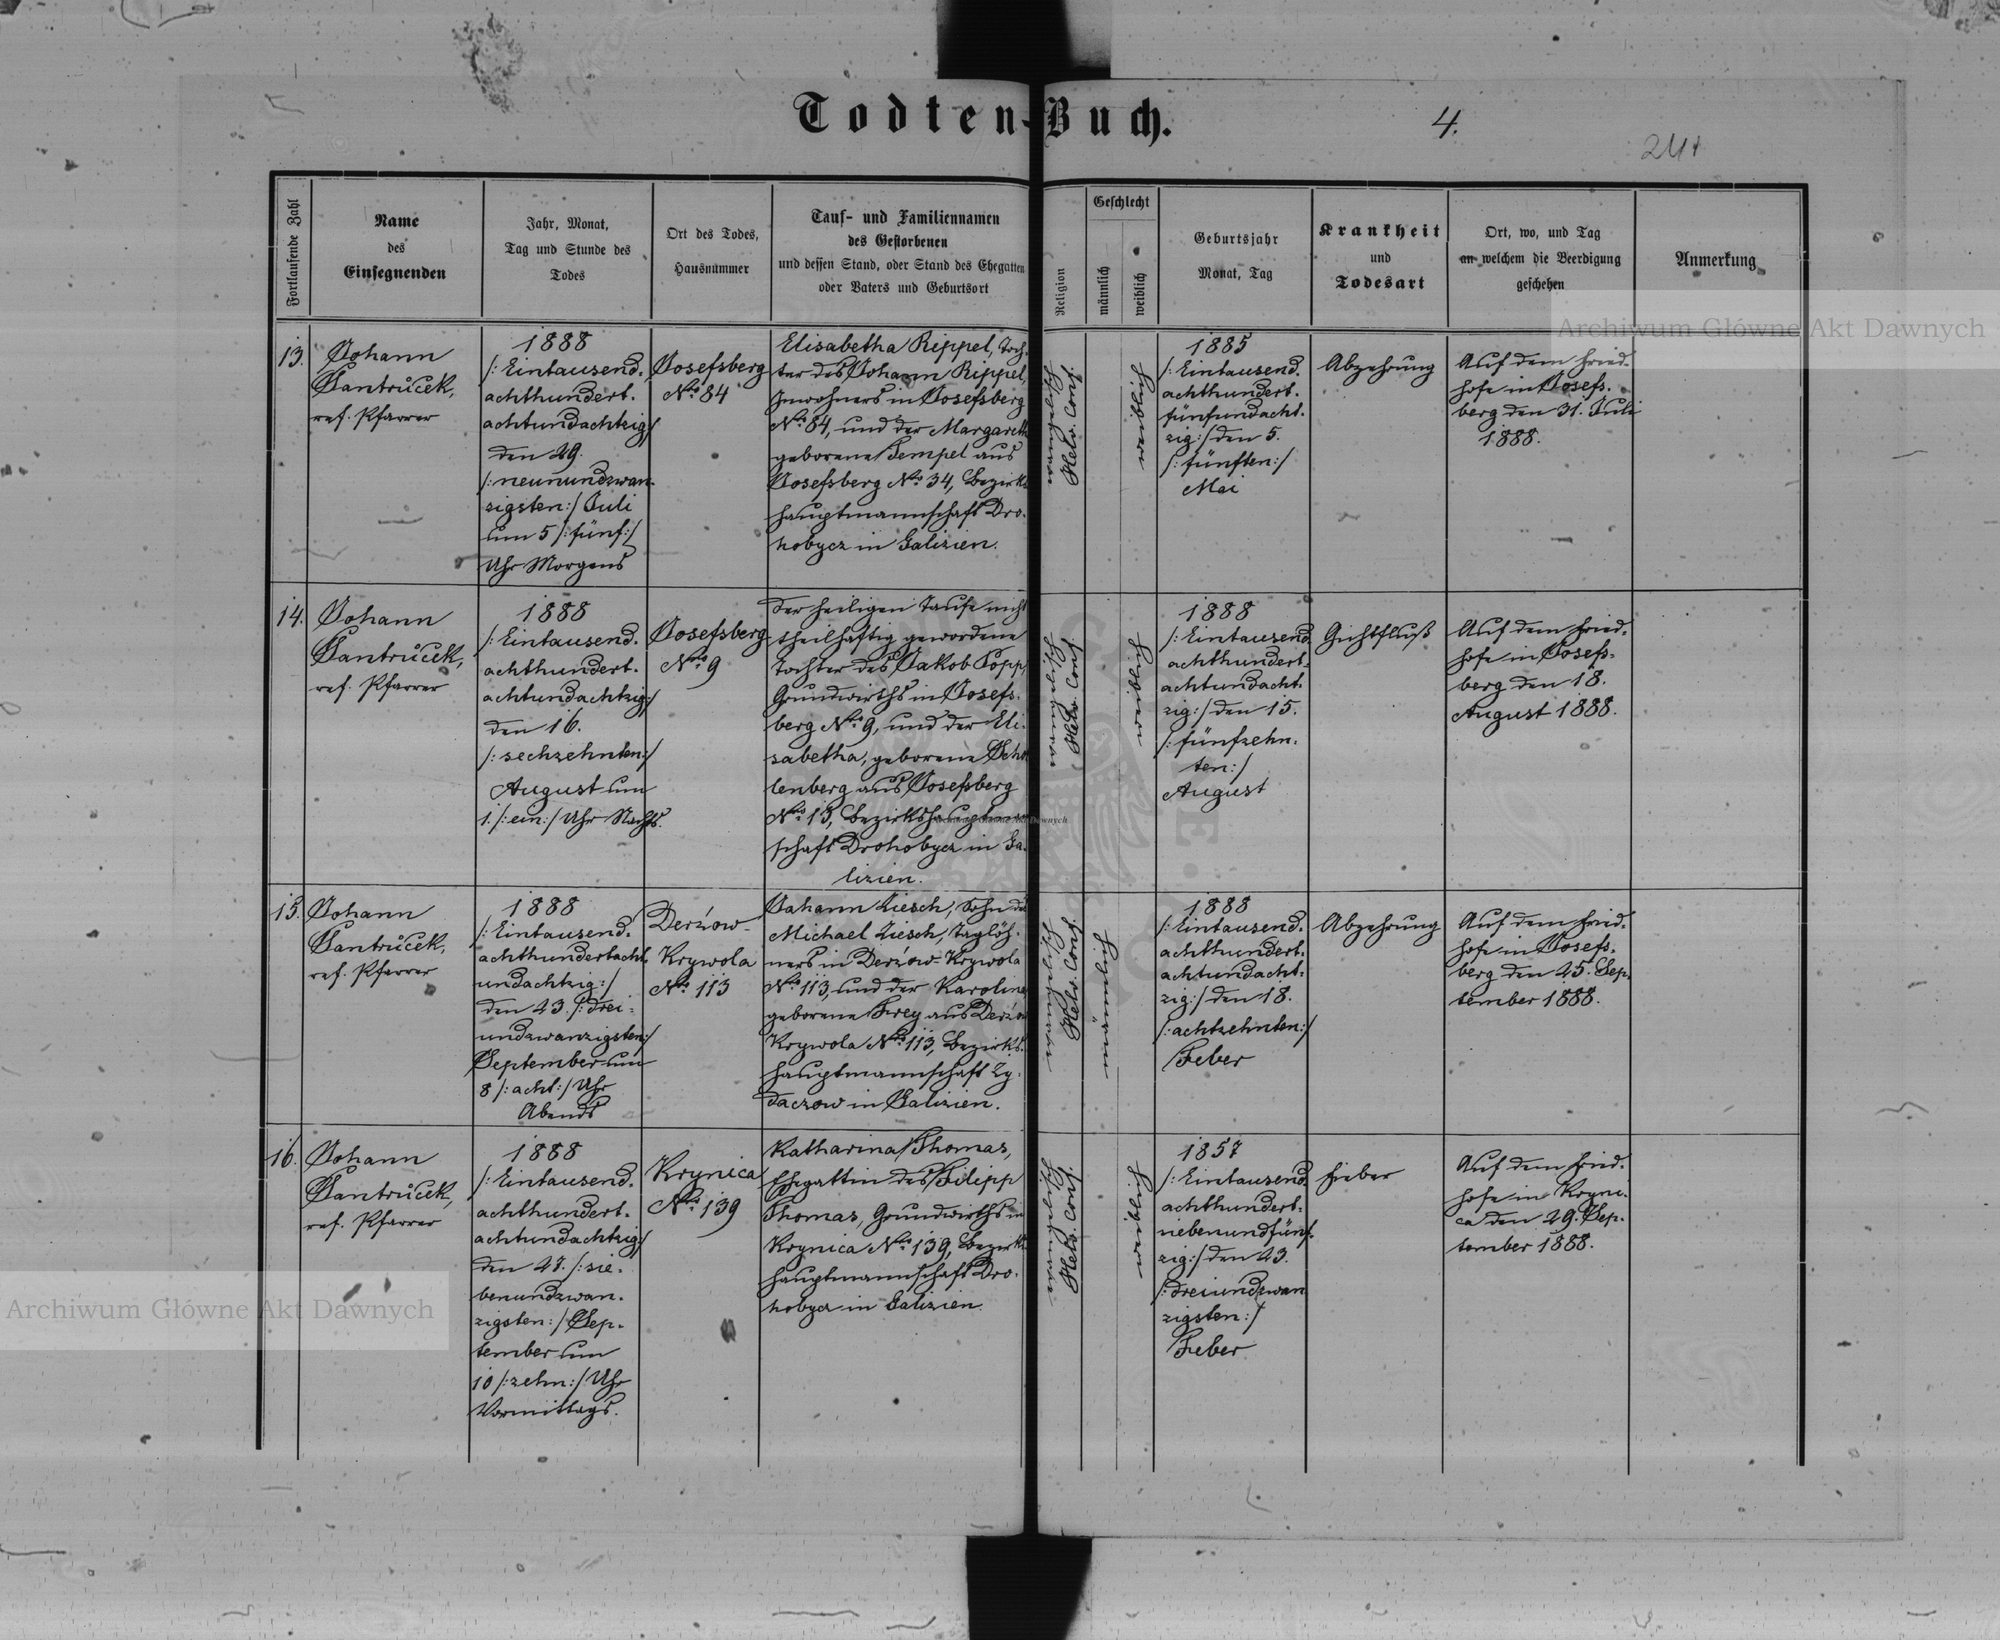 Todten-Buch.
4.
Fortlaufende Zahl
Name
des
Einsegnenden
Jahr, Monat,
Tag und Stunde des
Todes
Ort des Todes,
Hausnummer
Tauf- und Familiennamen
des Gestorbenen
und dessen Stand, oder Stand des Ehegatten
oder Vaters und Geburtsort
Religion
Geschlecht
männlich
weiblich
Geburtsjahr
Monat, Tag
Krankheit
und
Todesart
Ort, wo, und Tag
an welchem die Beerdigung
geschehen
Anmerkung
Archiwum Główne Akt Dawnych
13.
Johann
Santrůček,
ref. Pfarrer
1888
/: Eintausend.
achthundert.
achtundachtzig/
den 29.
/: neunundzwan-
zigsten:/ Juli
um 5 /: fünf:/
Uhr Morgens
Josefsberg
No. 84
Elisabetha Rippel, Toch-
ter des Johann Rippel,
Inwohners in Josefsberg
No. 84, und der Margareth
geborene Tempel aus
Josefsberg No. 34, Bezirks
hauptmannschaft Dro-
hobycz in Galizien.
evangelisch
Helv. Conf.
weiblich
1885
/: Eintausend.
achthundert.
fünfundacht.
zig:/ den 5.
/: fünften:/
Mai
Abzehrung
Auf dem Fried-
hofe in Josefs-
berg den 31. Juli
1888.
14.
Johann
Santrůček,
ref. Pfarrer
1888
/: Eintausend.
achthundert.
achtundachtzig:/
den 16.
/: sechzehnten:/
August um
1. /: ein:/ Uhr Nachts.
Josefsberg
No. 9
der heiligen Taufe nicht
theilhaftig gewordene
Tochter des Jakob Popp,
Grundwirths in Josefs-
berg No. 9, und der Eli-
sabetha, geborene Scho
lenberg aus Josefsberg
No. 13, Bezirkshauptmann
schaft Drohobycz in Ga-
lizien.
evangelisch
Helv. Conf.
weiblich
1888
/: Eintausend.
achthundert-
achtundacht.
zig:/ den 15.
/: fünfzehn.
ten:/
August
Gichtfluß
Auf dem Fried-
hofe in Josefs-
berg den 18.
August 1888.
15.
Johann
Santrůček,
ref. Pfarrer
1888
/: Eintausend.
achthundertacht.
undachtzig:/
den 23. /: drei-
undzwanzigsten:/
September um
8 /: acht:/ Uhr
Abends
Derżow-
Krywola
No. 113
Johann Ziesch, Sohn des
Michael Ziesch, Taglöh-
ners in Derżow-Krywola
No. 113, und der Karoline
geborene Frey aus Derżow
Krywola No. 113, Bezirks-
hauptmannschaft Zy-
daczow in Galizien.
evangelisch
Helv. Conf.
männlich
1888
/: Eintausend.
achthundert.
achtundacht.
zig:/ den 18.
/: achtzehnten:/
Feber
Abzehrung
Auf dem Fried-
hofe in Josefs-
berg den 25. Sep-
tember 1888.
16.
Johann
Santrůček,
ref. Pfarrer
1888
/: Eintausend.
achthundert.
achtundachtzig/
den 27. /: sie-
benundzwan-
zigsten:/ Sep-
tember um
10 /: zehn:/ Uhr
Vormittags.
Krynica
No. 139
Katharina Thomas,
Ehegattin des Filipp
Thomas, Grundwirths in
Krynica No. 139, Bezirks
hauptmannschaft Dro-
hobycz in Galizien
evangelisch
Helv. Conf.
weiblich
1857
/: Eintausend.
achthundert-
siebenundfünf-
zig:/ den 23.
/: dreiundzwan
zigsten:/
Feber
Fieber
Auf dem Fried-
hofe in Kryni-
ca den 29. Sep-
tember 1888.
Archiwum Główne Akt Dawnych